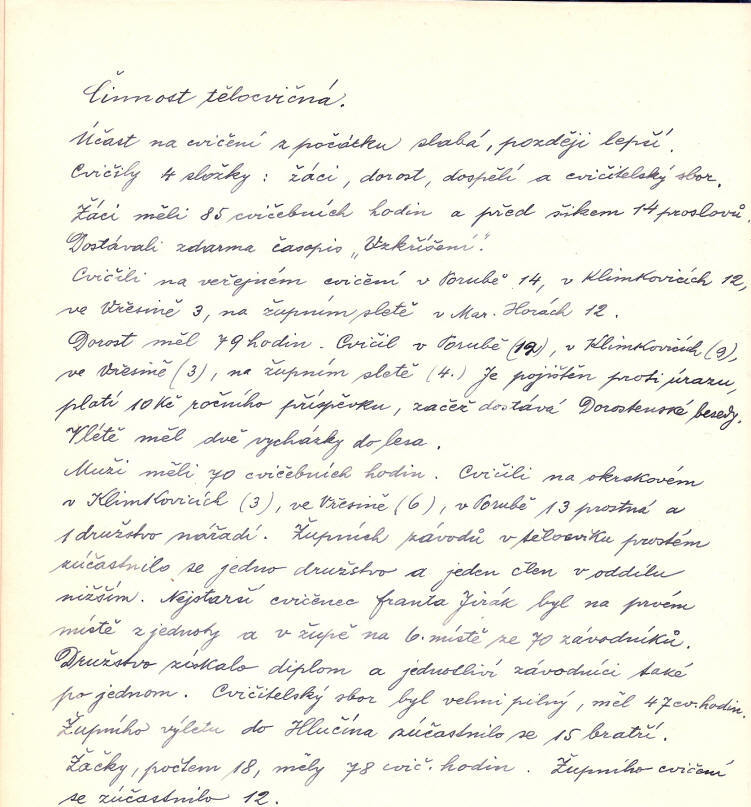 Činnost tělocvičná.
Účast na cvičení z počátku slabá, později lepší.
Cvičily 4 složky: žáci, dorost, dospělí a cvičitelský sbor.
Žáci měli 85 cvičebních hodin a před šikem 14 proslovů.
Dostávali zdarma časopis „Vzkříšení".
Cvičili na veřejném cvičení v Porubě 14, v Klimkovicích 12,
ve Vřesině 3, na župním sletě v Mar. Horách 12.
Dorost měl 79 hodin. Cvičil v Porubě (12), v Klimkovicích (9),
ve Vřesině (3), na župním sletě (4.) Je pojištěn proti úrazu,
platí 10 Kč ročního příspěvku, začež dostává Dorostenské besedy.
V létě měl dvě vycházky do lesa.
Muži měli 70 cvičebních hodin. Cvičili na okrskovém
v Klimkovicích (3), ve Vřesině (6), v Porubě 13 prostná a
1 družstvo nářadí. Župních závodů v tělocviku prostém
zúčastnilo se jedno družstvo a jeden člen v oddílu
nižším. Nejstarší cvičenec Franta Jirák byl na prvém
místě z jednoty a v župě na 6. místě ze 70 závodníků.
Družstvo získalo diplom a jednotliví závodníci také
po jednom. Cvičitelský sbor byl velmi pilný, měl 47 cv. hodin.
Župního výletu do Hlučína zúčastnilo se 15 bratří.
Žačky, počtem 18, měly 78 cvič. hodin. Župního cvičení
se zúčastnilo 12.